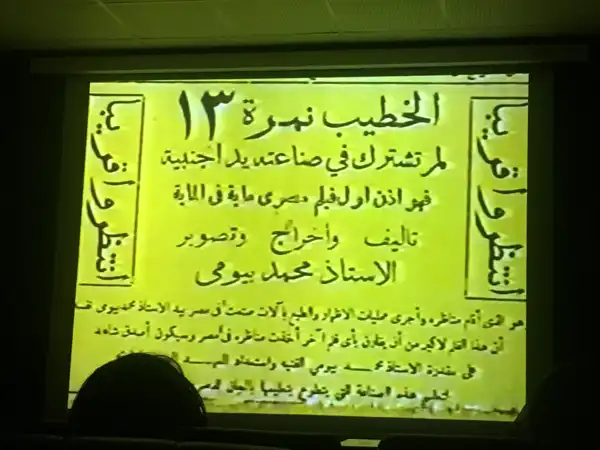 الخطيب نمرة ١٣
لم تشترك في صناعته يد اجنبية
فهو اذن اول فيلم مصرى ماية فى الماية
تاليف واخراج وتصوير
الاستاذ محمد بيومى
انتظروا قريبا
انتظروا قريبا
هو الذى أقام مناظره وأجرى عمليات الاظهار والطبع بآلات صنعت فى مصر بيد الاستاذ محمد بيومى نفسه
أن هذا الفلم لاكبر من أن يقارن بأى فلم آخر أخذت مناظره فى مصر وسيكون أصدق شاهد
على مقدرة الاستاذ محمد بيومى الفنية واستعداد
هذه الصناعة التى يتطوع بتعليمها